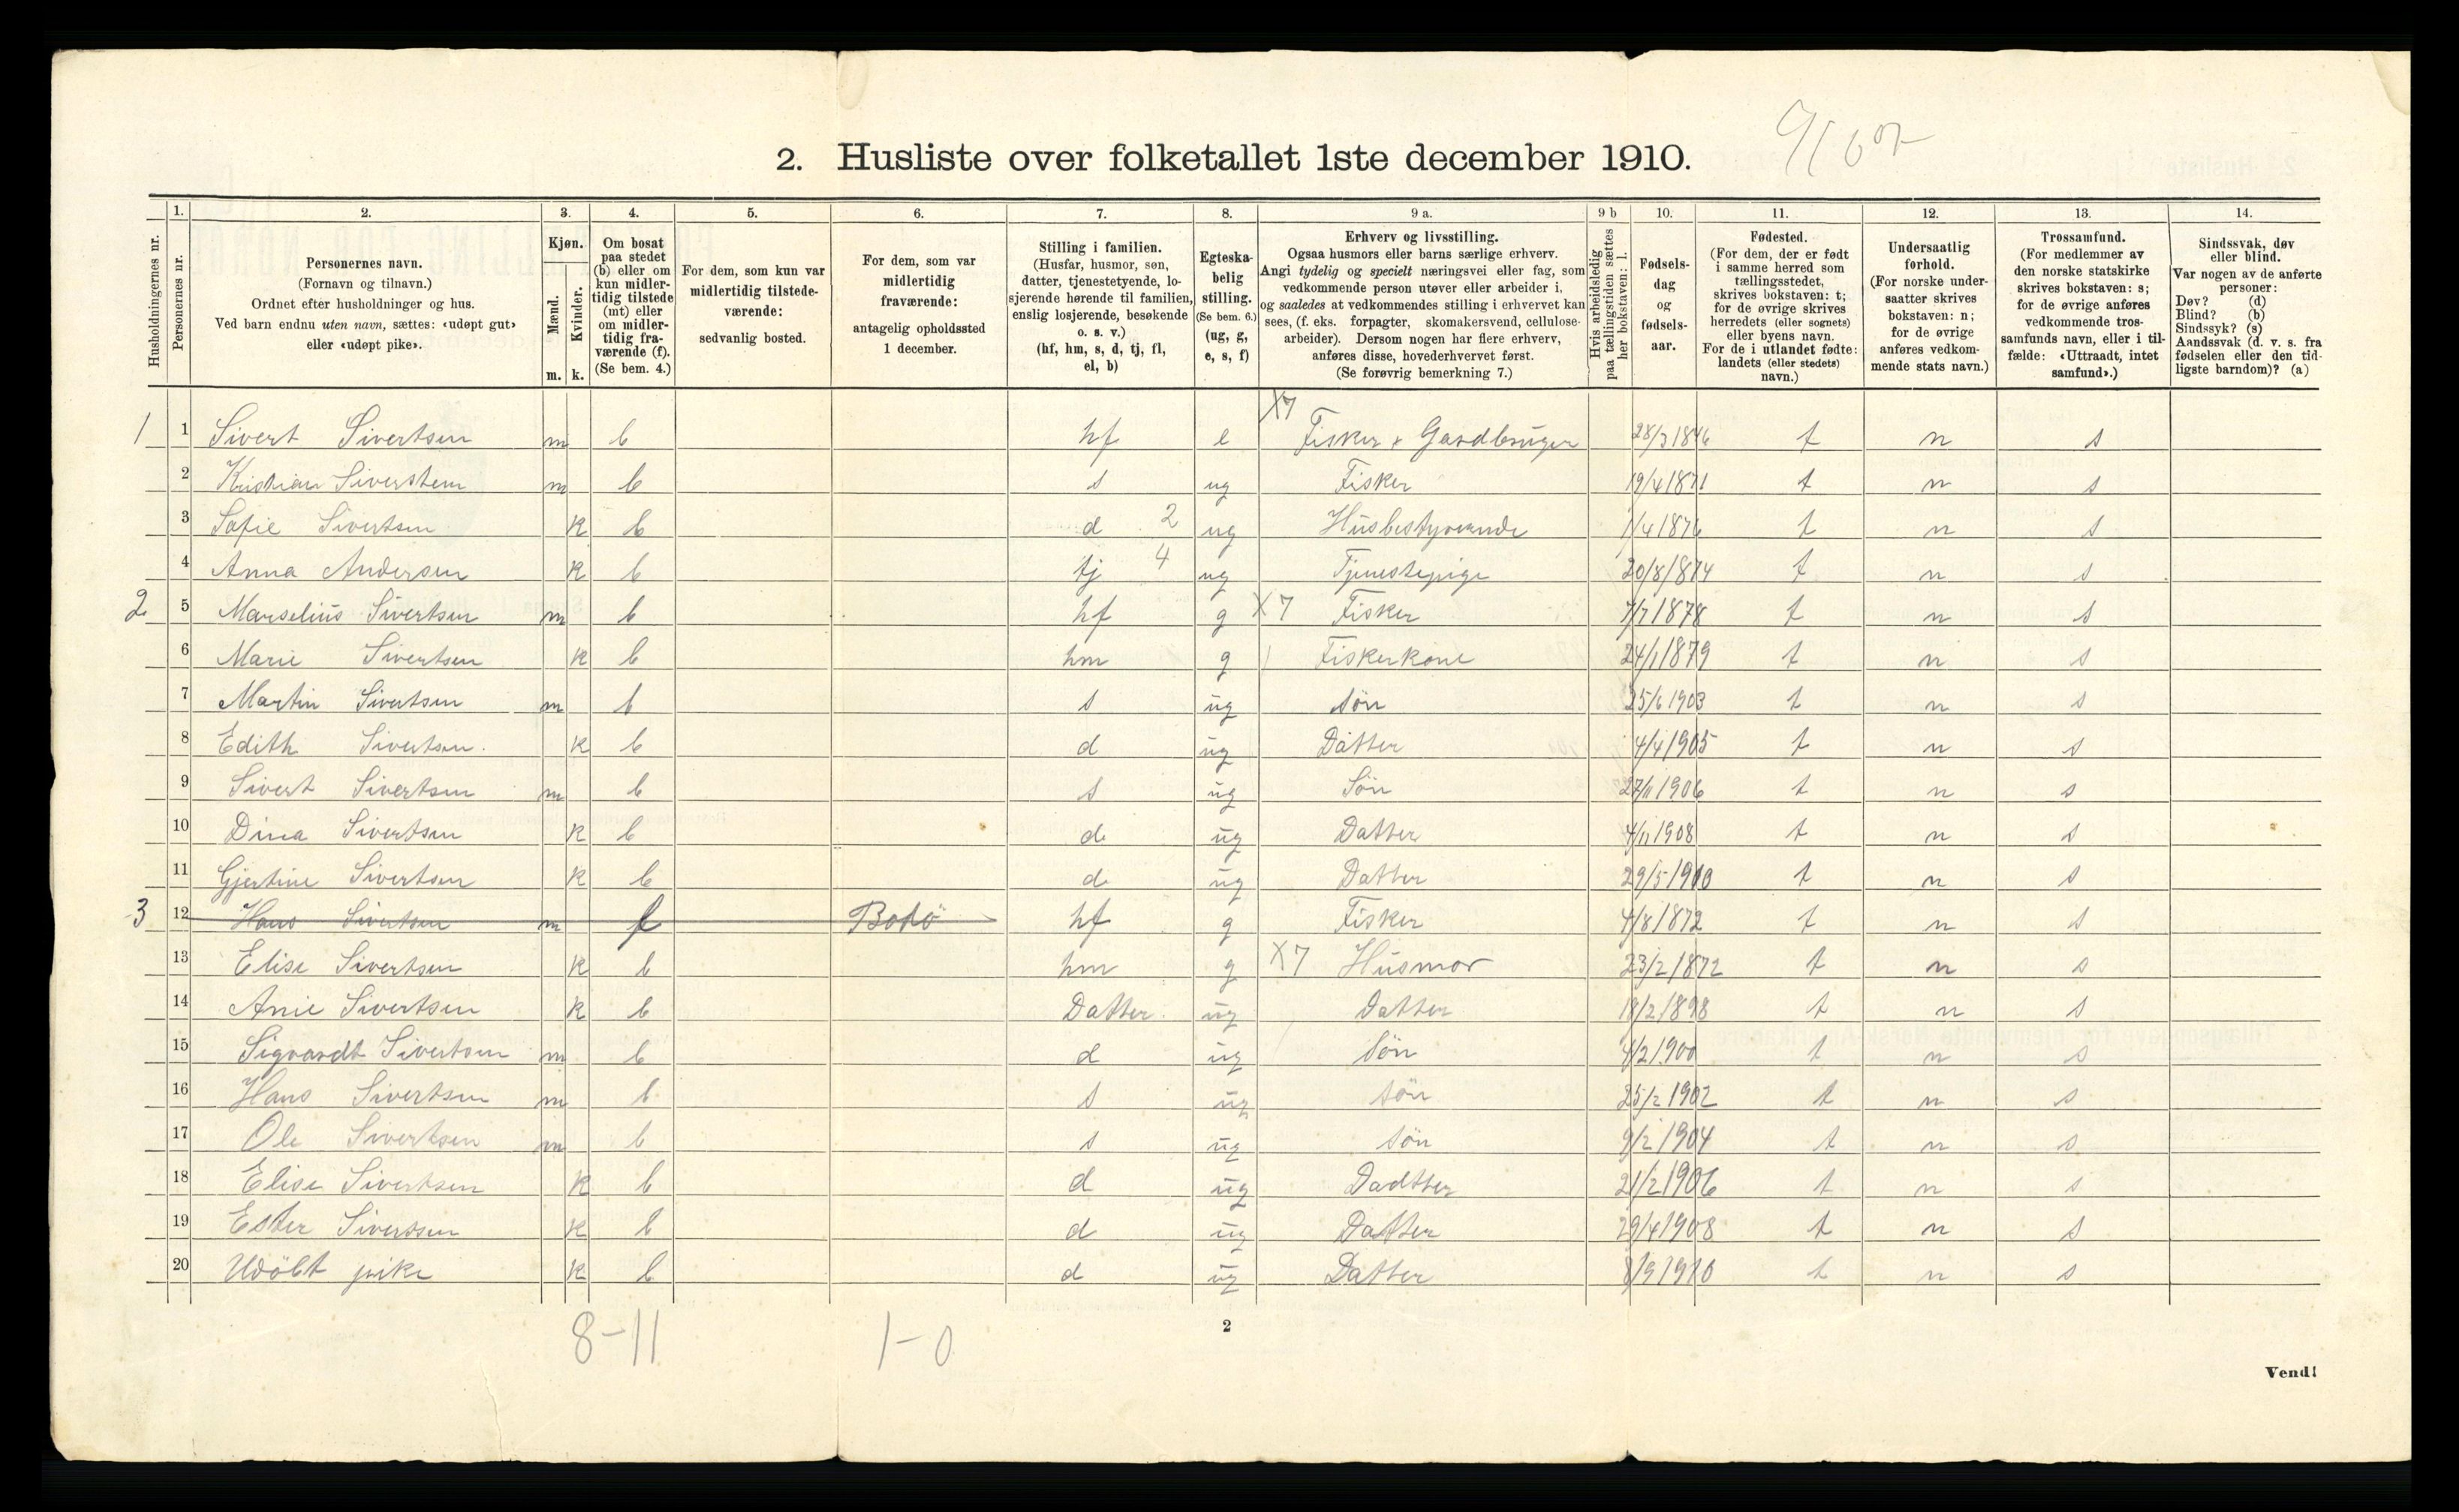 2. Husliste over folketallet 1ste december 1910.
Husholdningernes nr.
1. Personernes nr.
2. Personernes navn. (Fornavn og tilnavn.) Ordnet efter husholdninger og hus. Ved barn endnu uten navn, sættes: «udøpt gut» eller «udøpt pike».
3. Kjøn. Mænd. m. Kvinder. k.
4. Om bosat paa stedet (b) eller om kun midlertidig tilstede (mt) eller om midlertidig fraværende (f). (Se bem. 4.)
5. For dem, som kun var midlertidig tilstedeværende: sedvanlig bosted.
6. For dem, som var midlertidig fraværende: antagelig opholdssted 1 december.
7. Stilling i familien. (Husfar, husmor, søn, datter, tjenestetyende, losjerende hørende til familien, enslig losjerende, besøkende o. s. v.) (hf, hm, s, d, tj, fl, el, b)
8. Egteskabelig stilling. (Se bem. 6.) (ug, g, e, s, f)
9 a. Erhverv og livsstilling. Ogsaa husmors eller barns særlige erhverv. Angi tydelig og specielt næringsvei eller fag, som vedkommende person utøver eller arbeider i, og saaledes at vedkommendes stilling i erhvervet kan sees, (f. eks. forpagter, skomakersvend, cellulosearbeider). Dersom nogen har flere erhverv, anføres disse, hovederhvervet først. (Se forøvrig bemerkning 7.)
9 b Hvis arbeidsledig paa tællingstiden sættes her bokstaven: l.
10. Fødselsdag og fødselsaar.
11. Fødested. (For dem, der er født i samme herred som tællingsstedet, skrives bokstaven: t; for de øvrige skrives herredets (eller sognets) eller byens navn. For de i utlandet fødte: landets (eller stedets) navn.)
12. Undersaatlig forhold. (For norske undersaatter skrives bokstaven: n; for de øvrige anføres vedkommende stats navn.)
13. Trossamfund. (For medlemmer av den norske statskirke skrives bokstaven: s; for de øvrige anføres vedkommende trossamfunds navn, eller i tilfælde: «Uttraadt, intet samfund».)
14. Sindssvak, døv eller blind. Var nogen av de anførte personer: Døv? (d) Blind? (b) Sindssyk? (s) Aandssvak (d. v. s. fra fødselen eller den tidligste barndom)? (a)
1 1 Sivert Sivertsen m b hf e X7 Fisker x Gardbruger 28/3 1846 t n s
2 Kristian Siverstem m b s ug Fisker 19/4 1871 t n s
3 Sofie Sivertsen k b d 2 ug Husbestyrende 1/4 1876 t n s
4 Anna Andersen k b tj 4 ug Tjenestepige 20/8/1874 t n s
2 5 Marselius Sivertsen m b hf g X7 Fisker 7/7 1878 t n s
6 Marie Sivertsen k b hm g Fiskerkone 24/1 1879 t n s
7 Martin Sivertsen m b s ug Søn 25/6 1903 t n s
8 Edith Sivertsen k b d ug Datter 4/4 1905 t n s
9 Sivert Sivertsen m b s ug Søn 27/11 1906 t n s
10 Dina Sivertsen k b d ug Datter 4/11 1908 t n s
11 Gjertine Sivertsen k b d ug Datter 29/5 1910 t n s
3 12 Hans Sivertsen m f Bodö hf g Fisker 4/8 1872 t n s
13 Elise Sivertsen k b hm g X7 Husmor 23/2 1872 t n s
14 Anie Sivertsen k b Datter ug Datter 18/2 1898 t n s
15 Sigvardt Sivertsen m b d ug Søn 4/2 1900 t n s
16 Hans Sivertsen m b s ug Søn 25/2 1902 t n s
17 Ole Sivertsen m b s ug Søn 9/2 1904 t n s
18 Elise Sivertsen k b d ug Dadtter 21/2 1906 t n s
19 Ester Sivertsen k b d ug Datter 29/4 1908 t n s
20 Udöbt pike k b d ug Datter 8/9 1910 t n s
8-11 1-0
2
Vend!